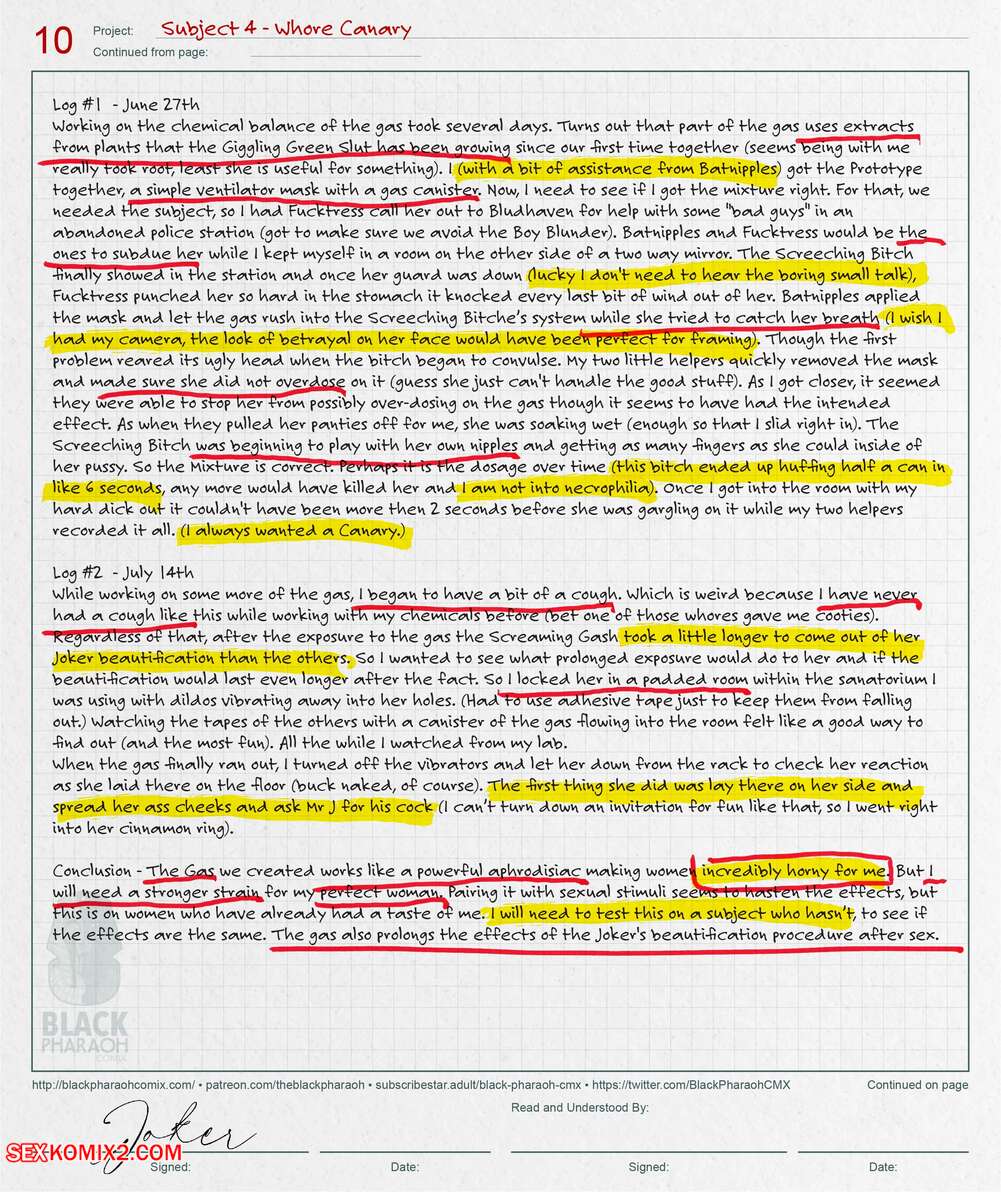 10
Project: Subject 4 - Whore Canary
Continued from page:
Log #1 - June 27th
Working on the chemical balance of the gas took several days. Turns out that part of the gas uses extracts
from plants that the Giggling Green Slut has been growing since our first time together (seems being with me
really took root, least she is useful for something). I (with a bit of assistance from Batnipples) got the Prototype
together, a simple ventilator mask with a gas canister. Now, I need to see if I got the mixture right. For that, we
needed the subject, so I had Fucktress call her out to Bludhaven for help with some "bad guys" in an
abandoned police station (got to make sure we avoid the Boy Blunder). Batnipples and Fucktress would be the
ones to subdue her while I kept myself in a room on the other side of a two way mirror. The Screeching Bitch
finally showed in the station and once her guard was down (lucky I don't need to hear the boring small talk),
Fucktress punched her so hard in the stomach it knocked every last bit of wind out of her. Batnipples applied
the mask and let the gas rush into the Screeching Bitche's system while she tried to catch her breath (I wish I
had my camera, the look of betrayal on her face would have been perfect for framing). Though the first
problem reared its ugly head when the bitch began to convulse. My two little helpers quickly removed the mask
and made sure she did not overdose on it (guess she just can't handle the good stuff). As I got closer, it seemed
they were able to stop her from possibly over-dosing on the gas though it seems to have had the intended
effect. As when they pulled her panties off for me, she was soaking wet (enough so that I slid right in). The
Screeching Bitch was beginning to play with her own nipples and getting as many fingers as she could inside of
her pussy. So the Mixture is correct. Perhaps it is the dosage over time (this bitch ended up huffing half a can in
like 6 seconds, any more would have killed her and I am not into necrophilia). Once I got into the room with my
hard dick out it couldn't have been more then 2 seconds before she was gargling on it while my two helpers
recorded it all. (I always wanted a Canary.)
Log #2 - July 14th
While working on some more of the gas, I began to have a bit of a cough. Which is weird because I have never
had a cough like this while working with my chemicals before (bet one of those whores gave me cooties).
Regardless of that, after the exposure to the gas the Screaming Gash took a little longer to come out of her
Joker beautification than the others. So I wanted to see what prolonged exposure would do to her and if the
beautification would last even longer after the fact. So I locked her in a padded room within the sanatorium I
was using with dildos vibrating away into her holes. (Had to use adhesive tape just to keep them from falling
out.) Watching the tapes of the others with a canister of the gas flowing into the room felt like a good way to
find out (and the most fun). All the while I watched from my lab.
When the gas finally ran out, I turned off the vibrators and let her down from the rack to check her reaction
as she laid there on the floor (buck naked, of course). The first thing she did was lay there on her side and
spread her ass cheeks and ask Mr J for his cock (I can't turn down an invitation for fun like that, so I went right
into her cinnamon ring).
Conclusion - The Gas we created works like a powerful aphrodisiac making women incredibly horny for me. But I
will need a stronger strain for my perfect woman. Pairing it with sexual stimuli seems to hasten the effects, but
this is on women who have already had a taste of me. I will need to test this on a subject who hasn't, to see if
the effects are the same. The gas also prolongs the effects of the Joker's beautification procedure after sex.
BLACK
PHARAOH
COMIX
http://blackpharaohcomix.com/ • patreon.com/theblackpharaoh • subscribestar.adult/black-pharaoh-cmx • https://twitter.com/BlackPharaohCMX
Continued on page
Read and Understood By:
Joker
SEXKOMIX2.COM
Signed: Date: Signed: Date: